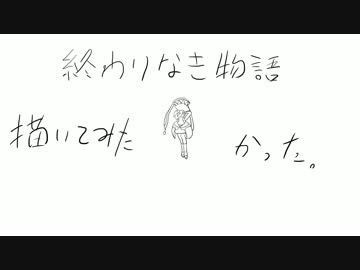 終わりなき物語
描いてみた かった。